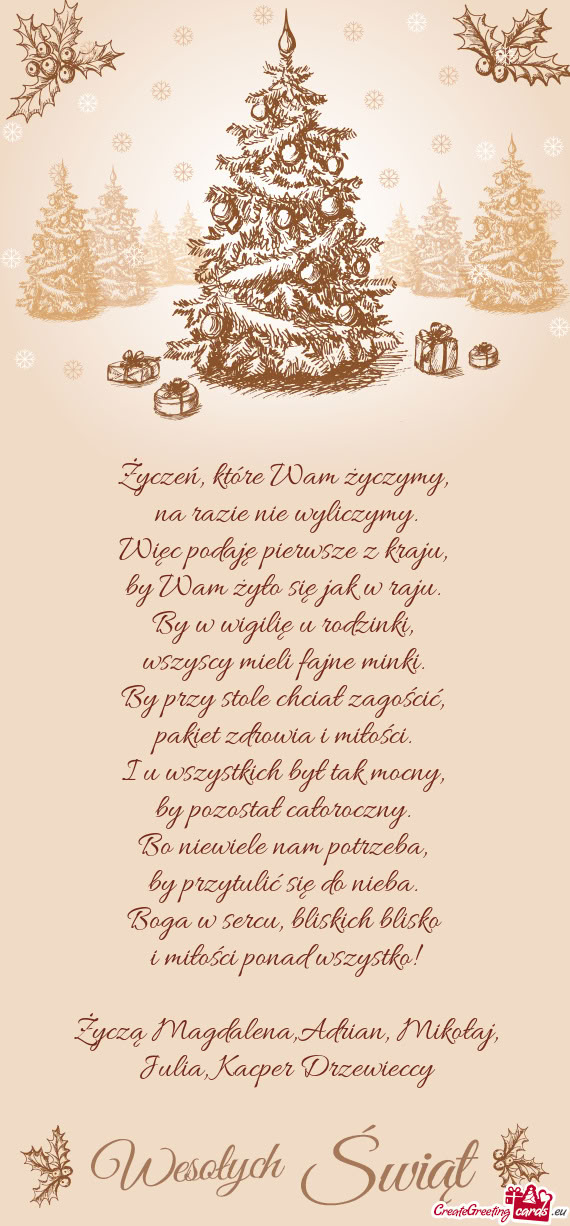 Życzeń, które Wam życzymy,
na razie nie wyliczymy.
Więc podaję pierwsze z kraju,
by Wam żyło się jak w raju.
By w wigilię u rodzinki,
wszyscy mieli fajne minki.
By przy stole chciał zagościć,
pakiet zdrowia i miłości.
I u wszystkich był tak mocny,
by pozostał całoroczny.
Bo niewiele nam potrzeba,
by przytulić się do nieba.
Boga w sercu, bliskich blisko
i miłości ponad wszystko!
Życzą Magdalena,Adrian, Mikołaj,
Julia,Kacper Drzewieccy
Wesołych Świąt
CreateGreetingcards.eu